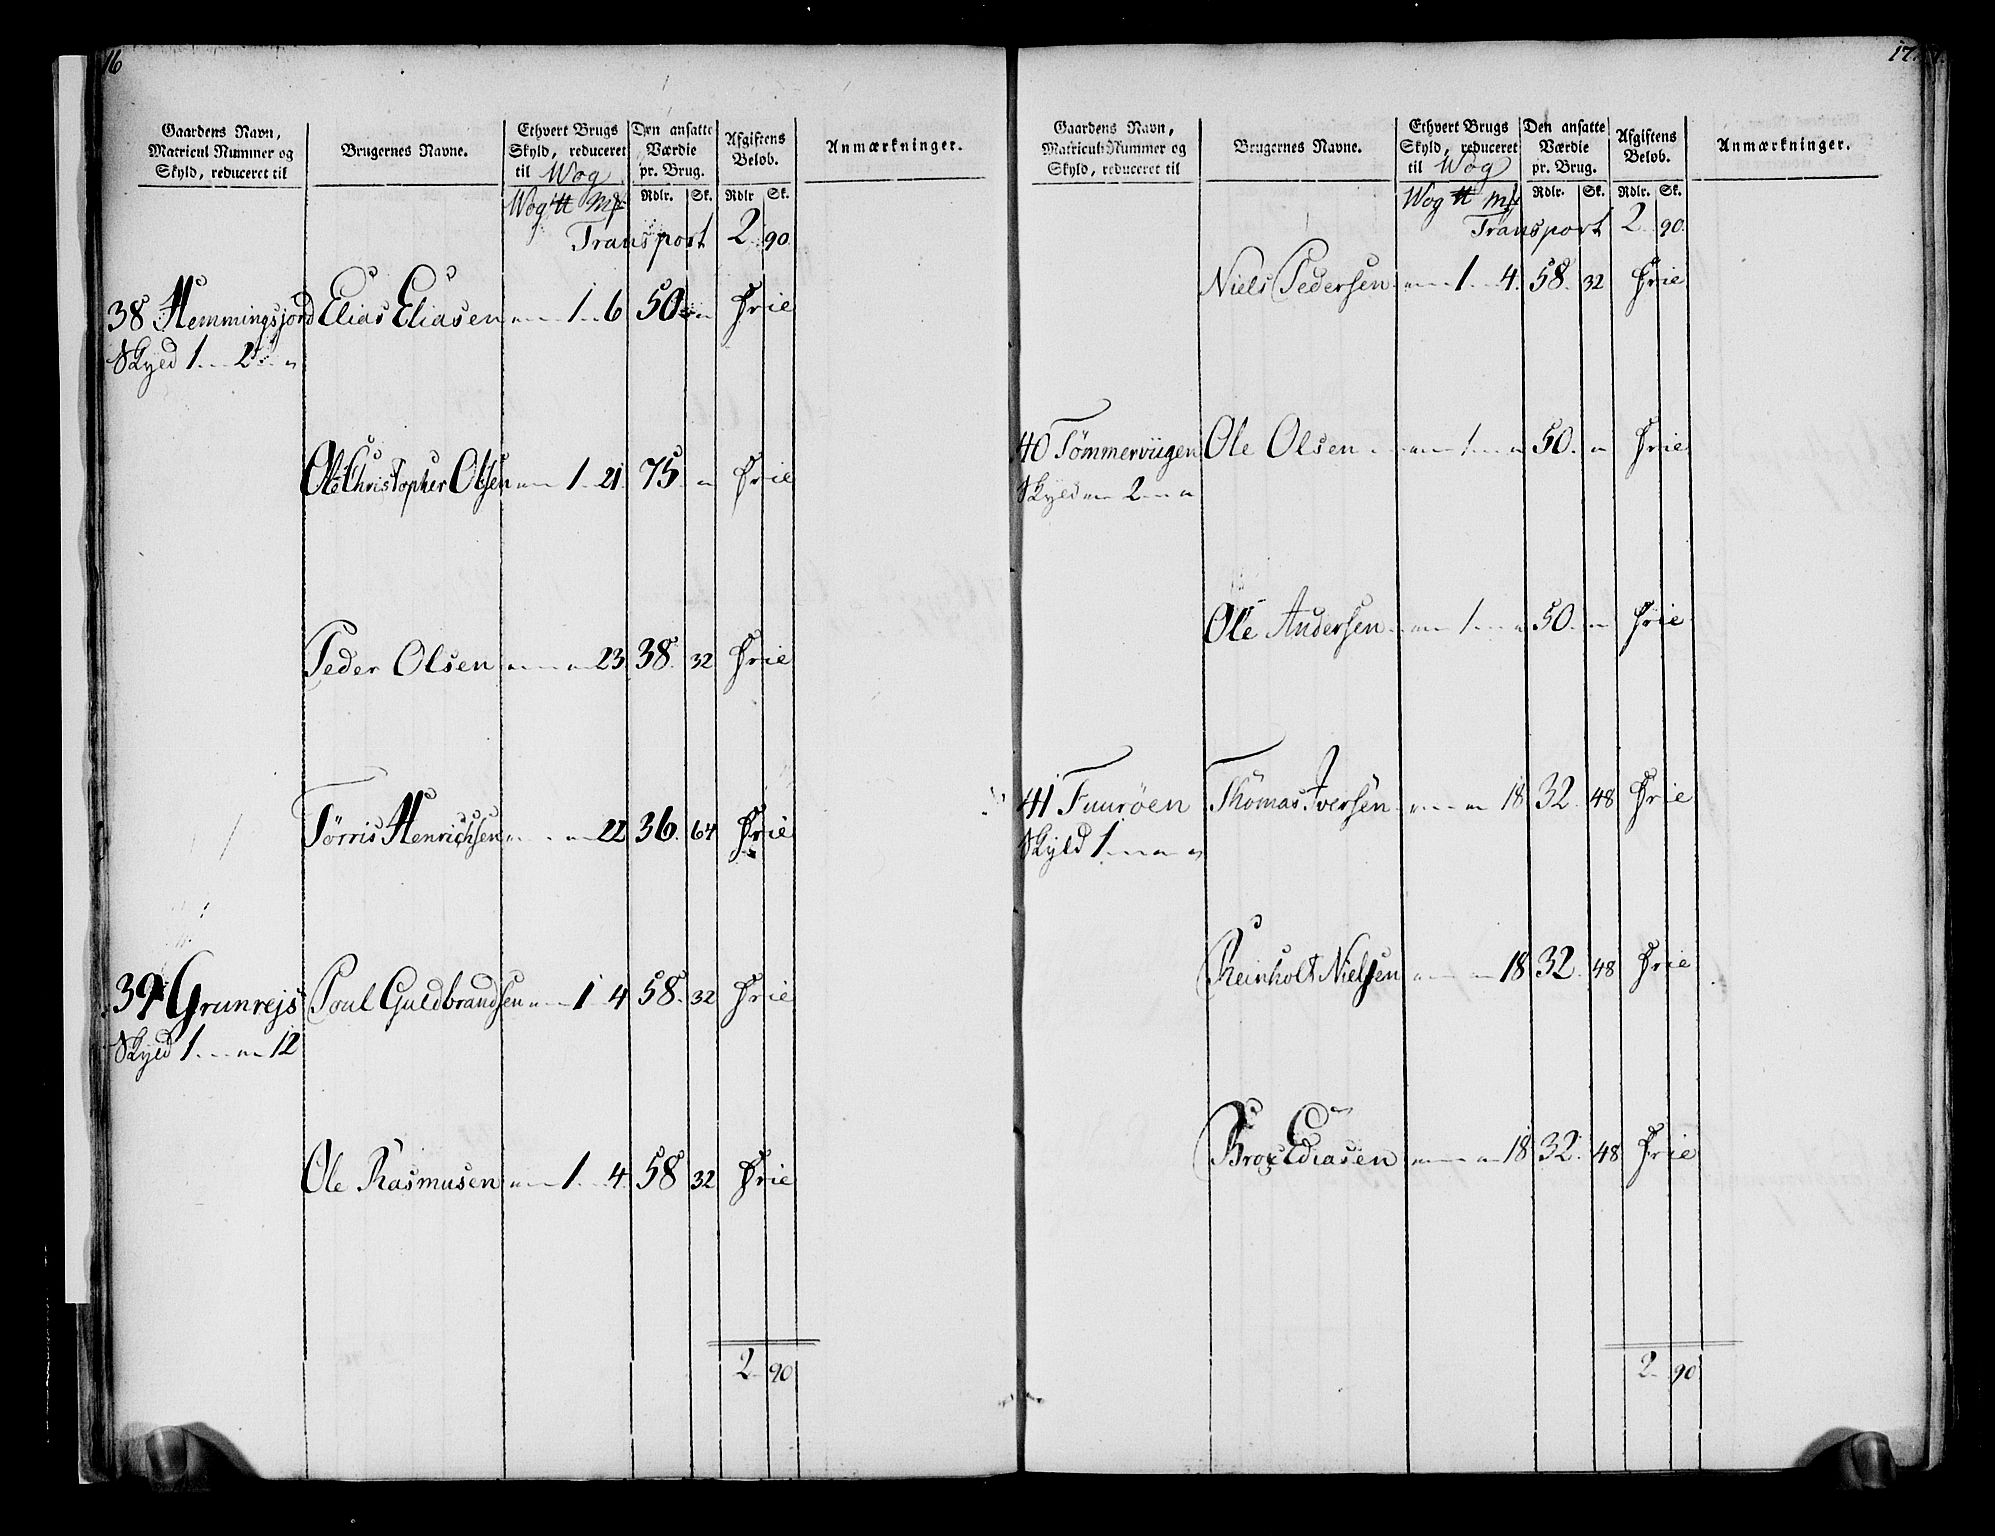 16
Gaardens Navn, Matricul Nummer og Skyld, reduceret til
Brugernes Navne.
Ethvert Brugs Skyld, reduceret til Wog
Den ansatte Værdie pr. Brug.
Afgiftens Beløb.
Anmærkninger.
Wog ℔ Mk Rdlr. Sk. Rdlr Sk.
Transport 2 90.
38 Hemmingsjord Elias Eliasen " 1 6 50 " Frie
Skyld 1 2 "
Ole Christopher Olsen " 1 21 75 " Frie
Peder Olsen " " 23 38 32 Frie
Tørris Henrichsen " " 22 36 64 Frie
39 Grunrejs Poul Guldbrandsen " 1 4 58 32 Frie
Skyld 1 " 12
Ole Rasmusen " 1 4 58 32 Frie
2 90
17
Gaardens Navn, Matricul-Nummer og Skyld, reduceret til
Brugernes Navne.
Ethvert Brugs Skyld, reduceret til Wog
Den ansatte Værdie pr. Brug.
Afgiftens Beløb.
Anmærkninger.
Wog ℔ Mk Rdlr. Sk. Rdlr. Sk.
Transport 2 90.
Niels Pedersen " 1 4 58 32 Frie
40 Tømmerviigen Ole Olsen " 1 " 50 " Frie
Skyld " 2 "
Ole Andersen " 1 " 50 " Frie
41 Fuurøen Thomas Iversen " " 18 32 48 Frie
Skyld 1 " "
Reinholt Nielsen " " 18 32 48 Frie
Eliasen " " 18 32 48 Frie
2 90